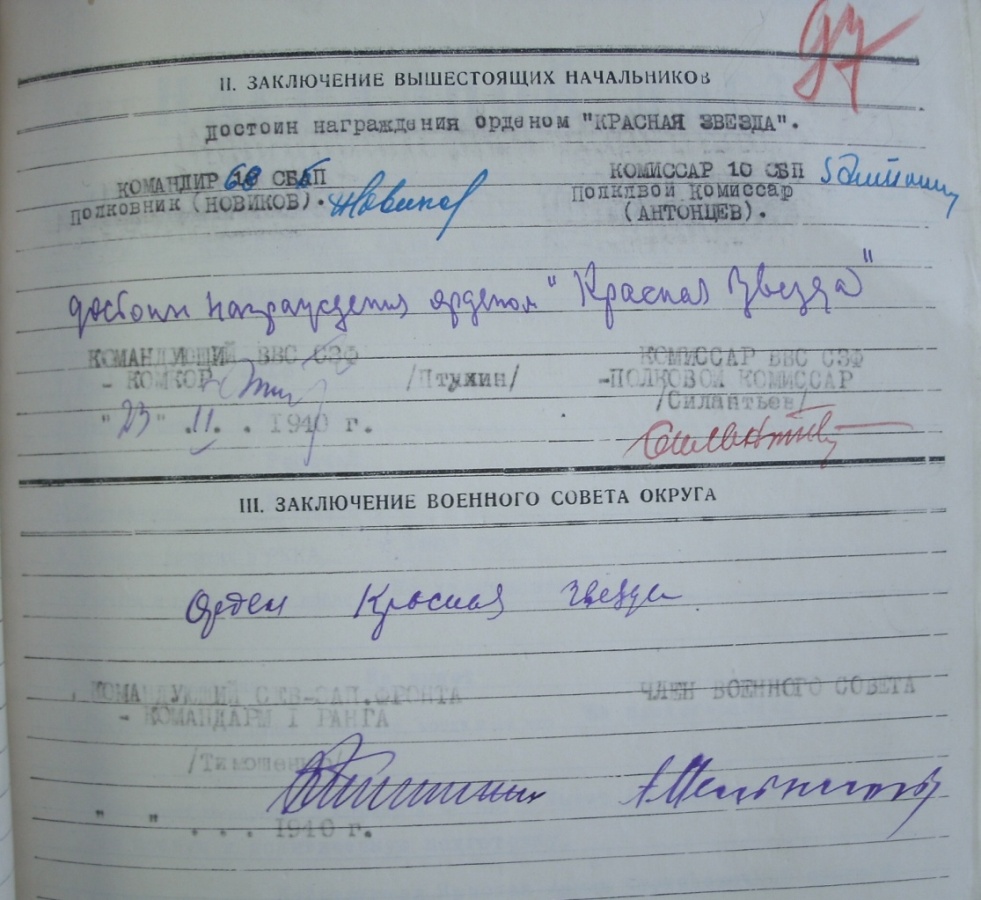 97
II. ЗАКЛЮЧЕНИЕ ВЫШЕСТОЯЩИХ НАЧАЛЬНИКОВ
достоин награждения орденом "КРАСНАЯ ЗВЕЗДА".
КОМАНДИР 68 СБАП
КОМИССАР 10 СБП
полковник (НОВИКОВ). Новиков
Полквой комиссар
(АНТОНЦЕВ).
достоин награждения орденом "Красная Звезда"
КОМАНДУЮЩИЙ ВВС СЗФ
КОМИССАР ВВС СЗФ
- КОМКОР /Птухин/
-ПОЛКОВОЙ КОМИССАР
/Силантьев/
"23" .II. . 1940 г.
Силантьев
III. ЗАКЛЮЧЕНИЕ ВОЕННОГО СОВЕТА ОКРУГА
Орден Красная звезда
КОМАНДУЮЩИЙ СЕВ-ЗАП.ФРОНТА
ЧЛЕН ВОЕННОГО СОВЕТА
- КОМАНДАРМ I РАНГА
/Тимошенко/
" " . . . 1940 г.